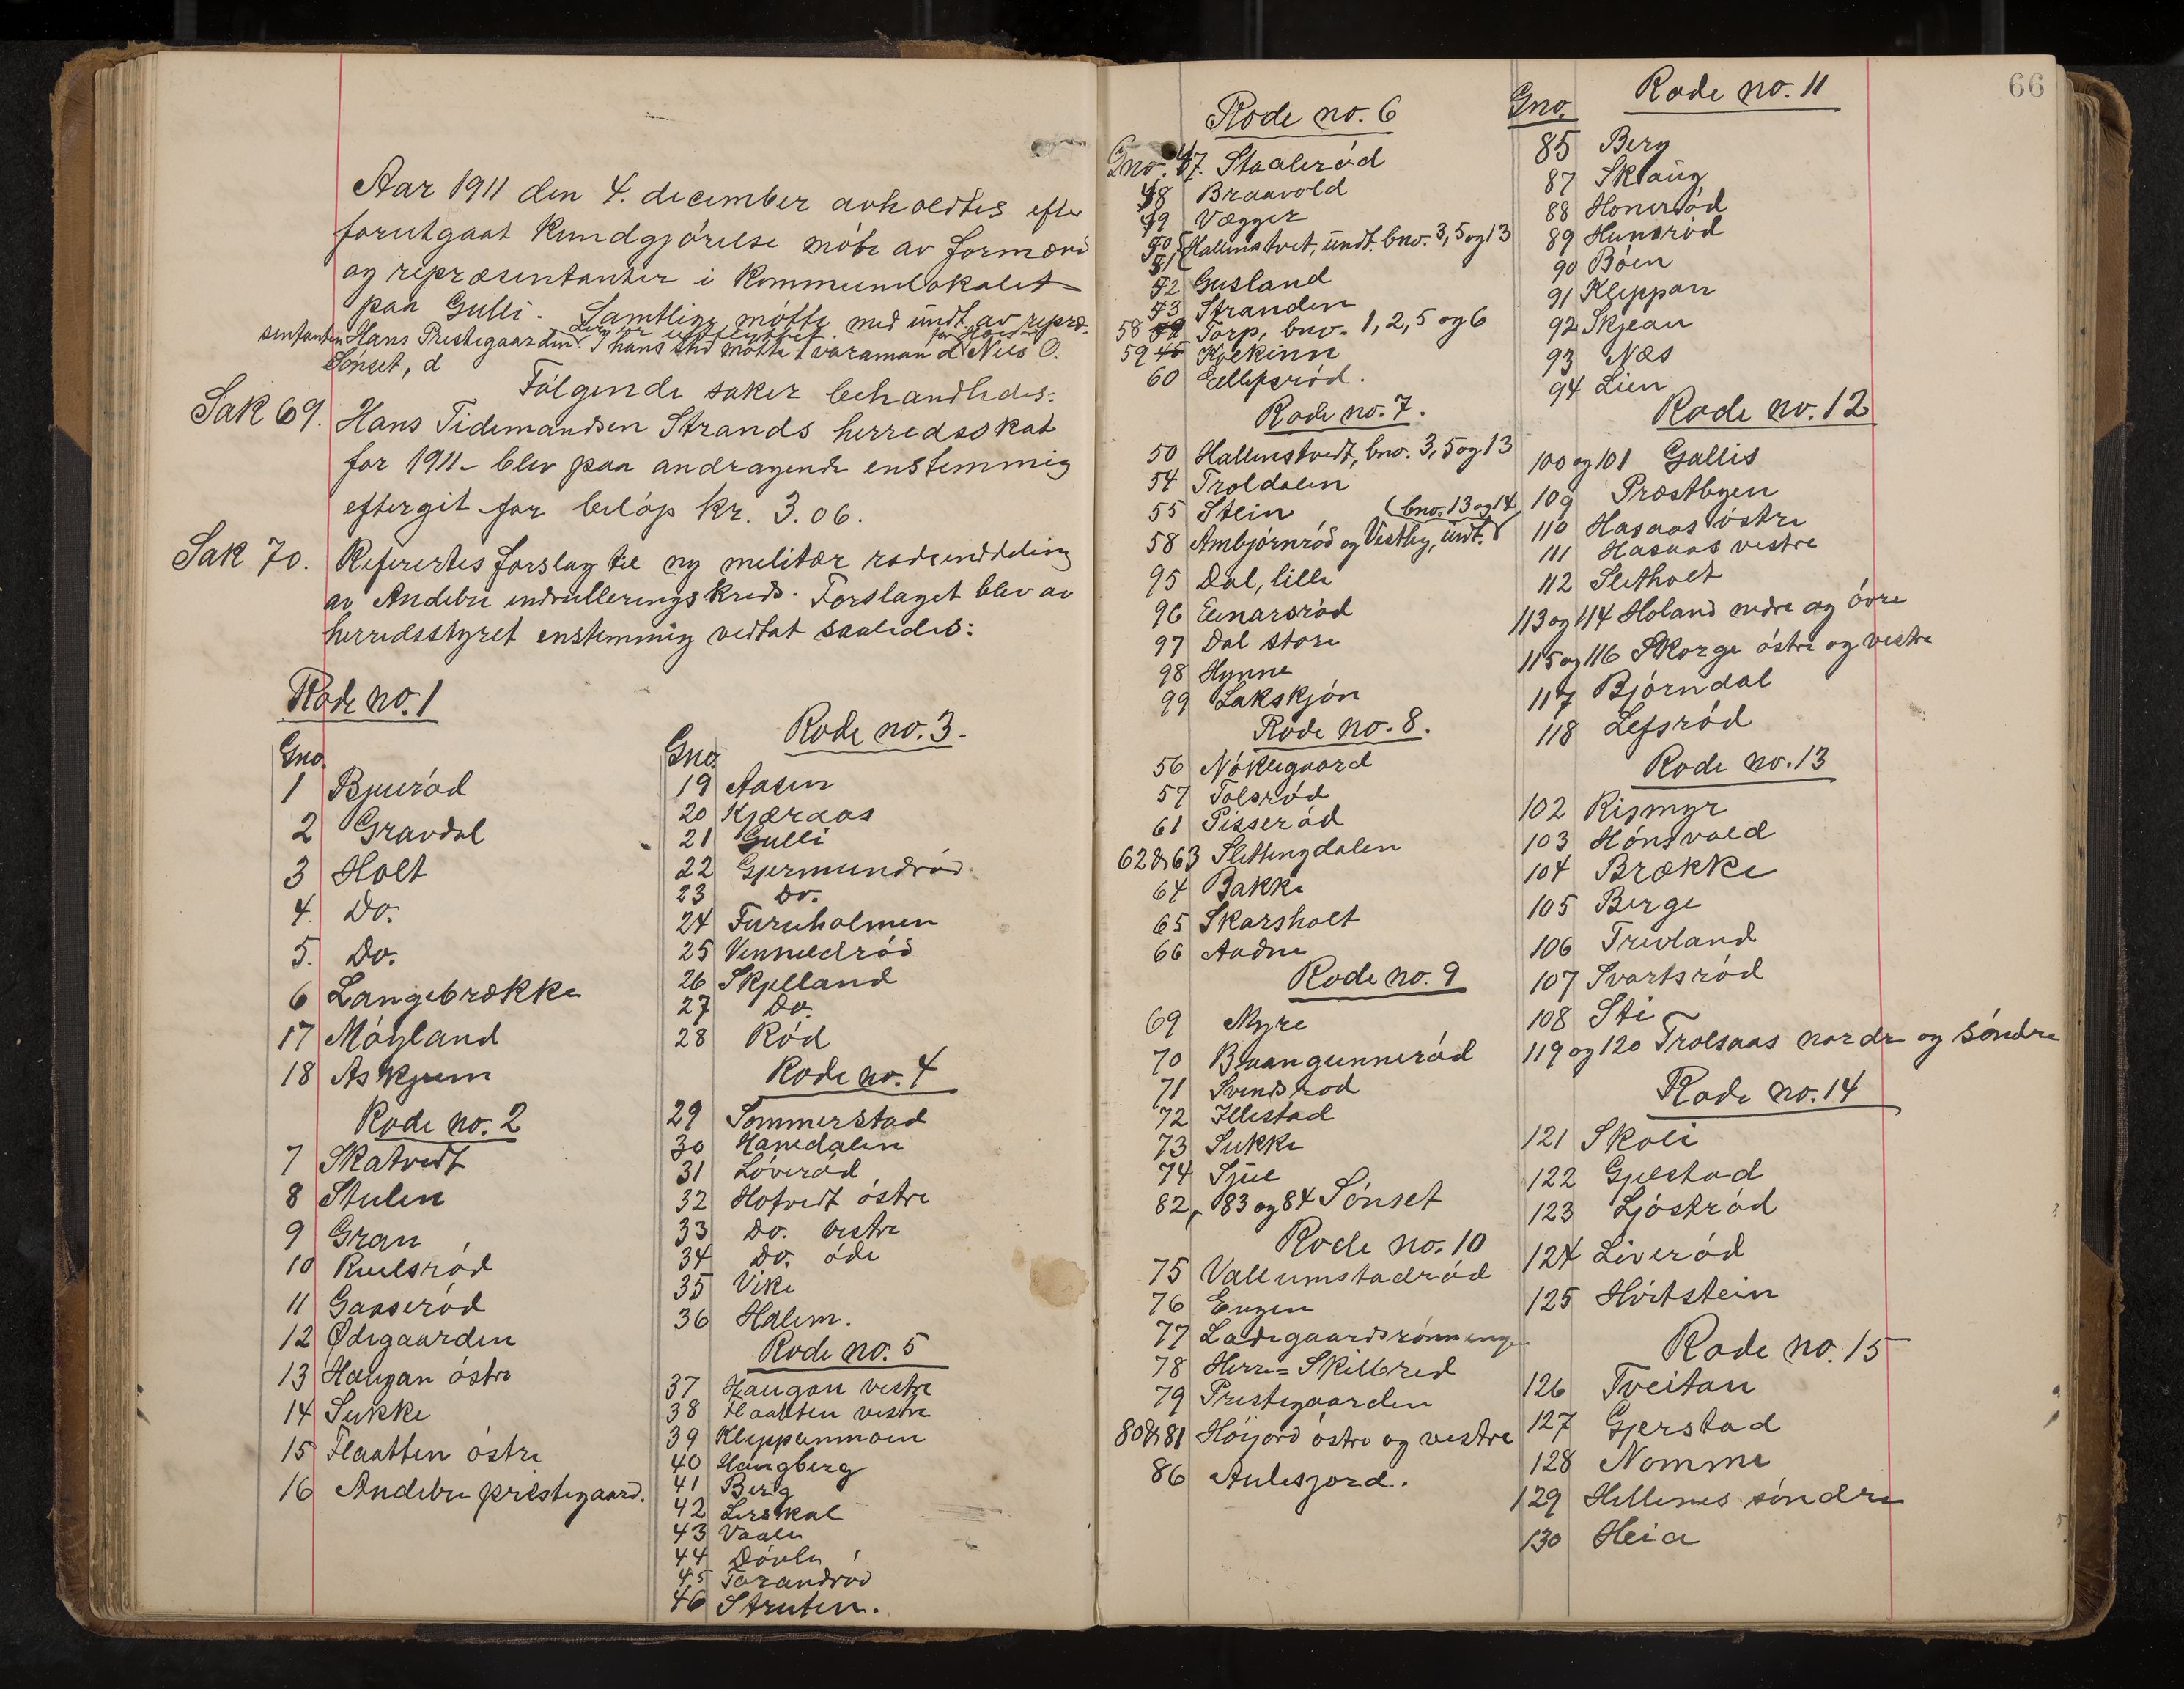 Aar 1911 den 4. december avholdtes efter
forutgaat kundgjórelse móte av formænd
og repræsentanter i kommunelokalet
paa Gulli. Samtlige mótte med undt. av repræ-
sentanten Hans Prestegaarden. I hans sted mótte varamand Nils O.
Sónset,
Fólgende saker behandledes:
Sak 69. Hans Tidemandsen Strands herredsskat
for 1911 - blev paa andragende enstemmig
eftergit for belóp kr. 3.06.
Sak 70. Refirertes forslag til ny militær rodeinddeling
av Andebu indrulleringskreds. Forslaget blev av
herredsstyret enstemmig vedtat saaledes:
Rode no. 1
Gno.
1 Bjueród
2 Gravdal
3 Holt
4. Do.
5. Do.
6 Langebrække
17 Móyland
18 Askjum
Rode no. 2
7 Skatvedt
8 Stulen
9 Gran
10 Ruelsród
11 Gaaseród
12 Ødegaarden
13 Haugan óstre
14 Sukke
15 Flaatten óstre
16 Andebu prestegaard.
Rode no. 3.
Gno.
19 Aasen
20 Kjæraas
21 Gulli
22 Gjermundród
23 Do.
24 Furuholmen
25 Vennelród
26 Skjelland
27 Do.
28 Ród
Rode no. 4
29 Sommerstad
30 Hanedalen
31 Lóveród
32 Hotvedt óstre
33 Do. vestre
34 Do. óde
35 Vike
36 Halem.
Rode no. 5
37 Haugan vestre
38 Flaatten vestre
39 Kleppanmoen
40 Haugberg
41 Berg
42 Lerskal
43 Vaale
44 Dóvle
45 Torandród
46 Struten.
66
Rode no. 6
Gno. 47. Staaleród
48 Braavold
49 Vægger
50, 51 Hallenstvet, undt. bno. 3, 5 og 13
52 Gusland
53 Stranden
58 Torp, bno. 1, 2, 5 og 6
59 Kolkinn
60 Eellefsród.
Rode no. 7.
50 Hallenstvedt, bno. 3, 5 og 13
54 Troldalen
55 Stein (bno. 13 og 14
58 Ambjórnród og Vestby, undt.
95 Dal, lille
96 Einarsród
97 Dal store
98 Hynne
99 Lakskjón
Rode no. 8.
56 Nóklegaard
57 Tolsród
61 Pisseród
62 & 63 Slettingdalen
64 Bakke
65 Skarsholt
66 Aadne
Rode no. 9
69 Myre
70 Braangunneród
71 Svendsrod
72 Illestad
73 Sukke
74 Sjue
82, 83 og 84 Sónset
Rode no. 10
75 Vallumstadród
76 Engen
77 Ladegaardsrónningen
78 Herre=Skilbred
79 Prestegaarden
80 & 81 Hóijord óstre og vestre
86 Aulesjord.
Rode no. 11
Gno.
85 Berg
87 Sklaug
88 Honeród
89 Hunsród
90 Bóen
91 Kleppan
92 Skjeau
93 Næs
94 Lien
Rode no. 12
100 og 101 Gallis
109 Præstbyen
110 Hasaas óstre
111 Hasaas vestre
112 Sletholt
113 og 114 Holand nedre og óvre
115 og 116 Skorge óstre og vestre
117 Bjórndal
118 Lefsród
Rode no. 13
102 Rismyr
103 Hónsvald
104 Brække
105 Berge
106 Trevland
107 Svartsród
108 Sti
119 og 120 Trolsaas nordre og sóndre
Rode no. 14
121 Skoli
122 Gjelstad
123 Ljóstród
124 Liveród
125 Hvitstein
Rode no. 15
126 Tveitan
127 Gjerstad
128 Nomme
129 Hellenes sóndre
130 Heia